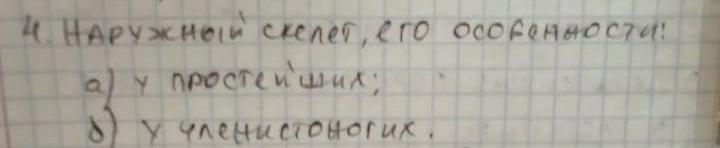 4. Наружный скелет, его особенности:
а) у простейших;
б) у членистоногих.